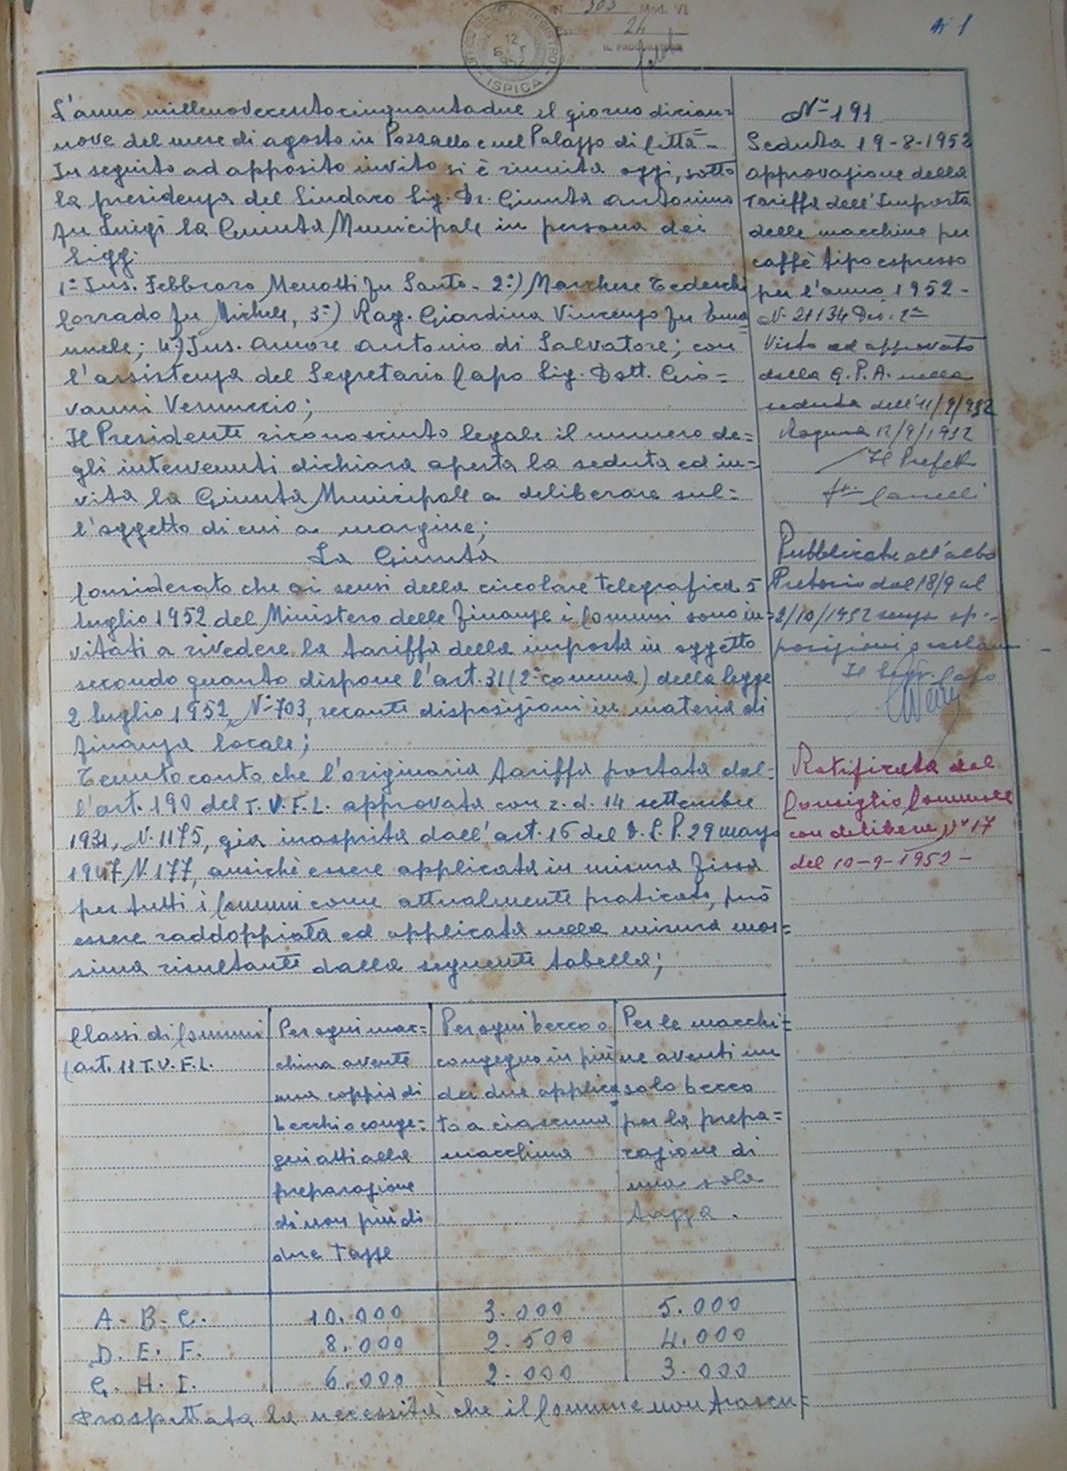 N. 303 Mod. VI
24
UFFICIO DEL REGISTRO
12
ISPICA
N° 1
L'anno millenovecentocinquantadue il giorno dician=
nove del mese di agosto in Pozzallo e nel Palazzo di Città -
In seguito ad apposito invito si è riunita oggi, sotto
la presidenza del Sindaco Sig. Dr. Giunta Antonino
fu Luigi la Giunta Municipale in persona dei
Sigg:
1°- Ins. Febbraro Menotti fu Santo - 2°) Marchese Tedeschi
Corrado fu Michele, 3°) Rag. Giardina Vincenzo fu Ema=
nuele; 4°) Ins. Amore Antonio di Salvatore; con
l'assistenza del Segretario Capo Sig. Dott. Gio=
vanni Vernuccio;
Il Presidente riconosciuto legale il numero de=
gli intervenuti dichiara aperta la seduta ed in=
vita la Giunta Municipale a deliberare sul=
l'oggetto di cui a margine;
La Giunta
Considerato che ai sensi della circolare telegrafica 5
luglio 1952 del Ministero delle Finanze i Comuni sono in=
vitati a rivedere la tariffa della imposta in oggetto
secondo quanto dispone l'art. 31 (2° comma) della legge
2 luglio 1952, N° 703, recante disposizioni in materia di
finanza locale;
Tenuto conto che l'originaria tariffa portata dal=
l'art. 190 del T.U.F.L. approvata con r. d. 14 settembre
1931, N. 1175, già inasprita dall'art. 16 del D.L.P. 29 marzo
1947 N 177, anzichè essere applicata in misura fissa
per tutti i Comuni come attualmente praticato, può
essere raddoppiata ed applicata nella misura mas=
sima risultante dalla seguente tabella;
N° 191
Seduta 19-8-1952
approvazione della
Tariffa dell'Imposta
delle macchine per
caffè tipo espresso
per l'anno 1952 -
N. 21134 Div. 2ª
Visto ed approvato
dalla G.P.A. nella
seduta dell'11/9/952
Ragusa 12/9/1952
Il Prefetto
Pubblicata all'albo
Pretorio dal 18/9 al
2/10/1952 senza op-
posizioni o reclami
Il Segr. Capo
Ratificata dal
Consiglio Comunale
con delibera N° 17
del 10-9-1952 -
Classi di Comuni
(art. 11 T.U.F.L.
Per ogni mac=
china avente
una coppia di
becchi o conge=
gni atti alla
preparazione
di non più di
due tazze
Per ogni becco o
congegno in più
dei due applica=
to a ciascuna
macchina
Per le macchi=
ne aventi un
solo becco
per la prepa=
razione di
una sola
tazza.
A. B. C. 10.000 3.000 5.000
D. E. F. 8.000 2.500 4.000
G. H. I. 6.000 2.000 3.000
Prospettata la necessità che il Comune non trascu=